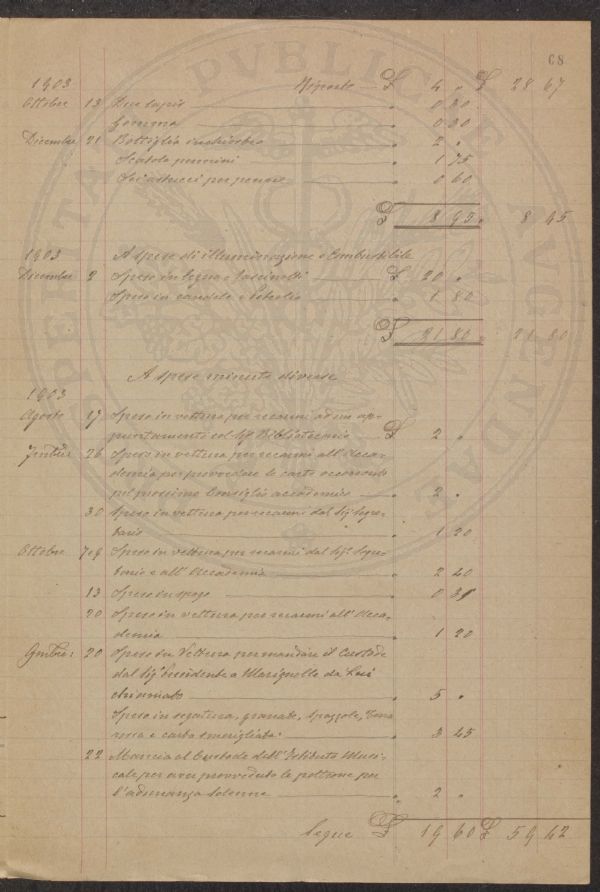 68
1903 Riporto £ 4 " £ 28 67
Ottobre 13 Due lapis " 0 30
Gomma " 0 30
Dicembre 21 Bottiglia inchiostro " 2 "
Scatola pennini " 1 75
Sei astucci per penne " 0 60
£ 8 95 " 8 95
1903 A spese di illuminazione e Combustibile
Dicembre 2 Spese in legna e fascinotti £ 20 "
Spese in candele e Petrolio " 1 80
£ 21 80 " 21 80
A spese minute diverse
1903
Agosto 17 Spese in vettura per recarmi ad un ap-
puntamento col Sigr Bibliotecario £ 2 "
7mbre 26 Spese in vettura per recarmi all'Acca-
demia per provvedere le carte occorrenti
pel prossimo Consiglio accademico " 2 "
30 Spese in vettura per recarmi dal Sigr Segre-
tario " 1 20
Ottobre 7 e 9 Spese in vettura per recarmi dal Sigr Segre-
tario e all'Accademia " 2 40
13 Spese in spago " 0 35
20 Spese in vettura per recarmi all'Acca-
demia " 1 20
9mbre 20 Spese in Vettura per mandare il Custode
dal Sigr Presidente a Marignolle da Lui
chiamato " 5 "
Spese in segatura, granate, spazzole,
e carta smerigliata " 3 45
22 Mancia al Custode dell'Istituto Musi-
cale per aver provveduto le poltrone per
l'adunanza solenne " 2 "
Segue £ 19 60 £ 59 42
PVBLICAE